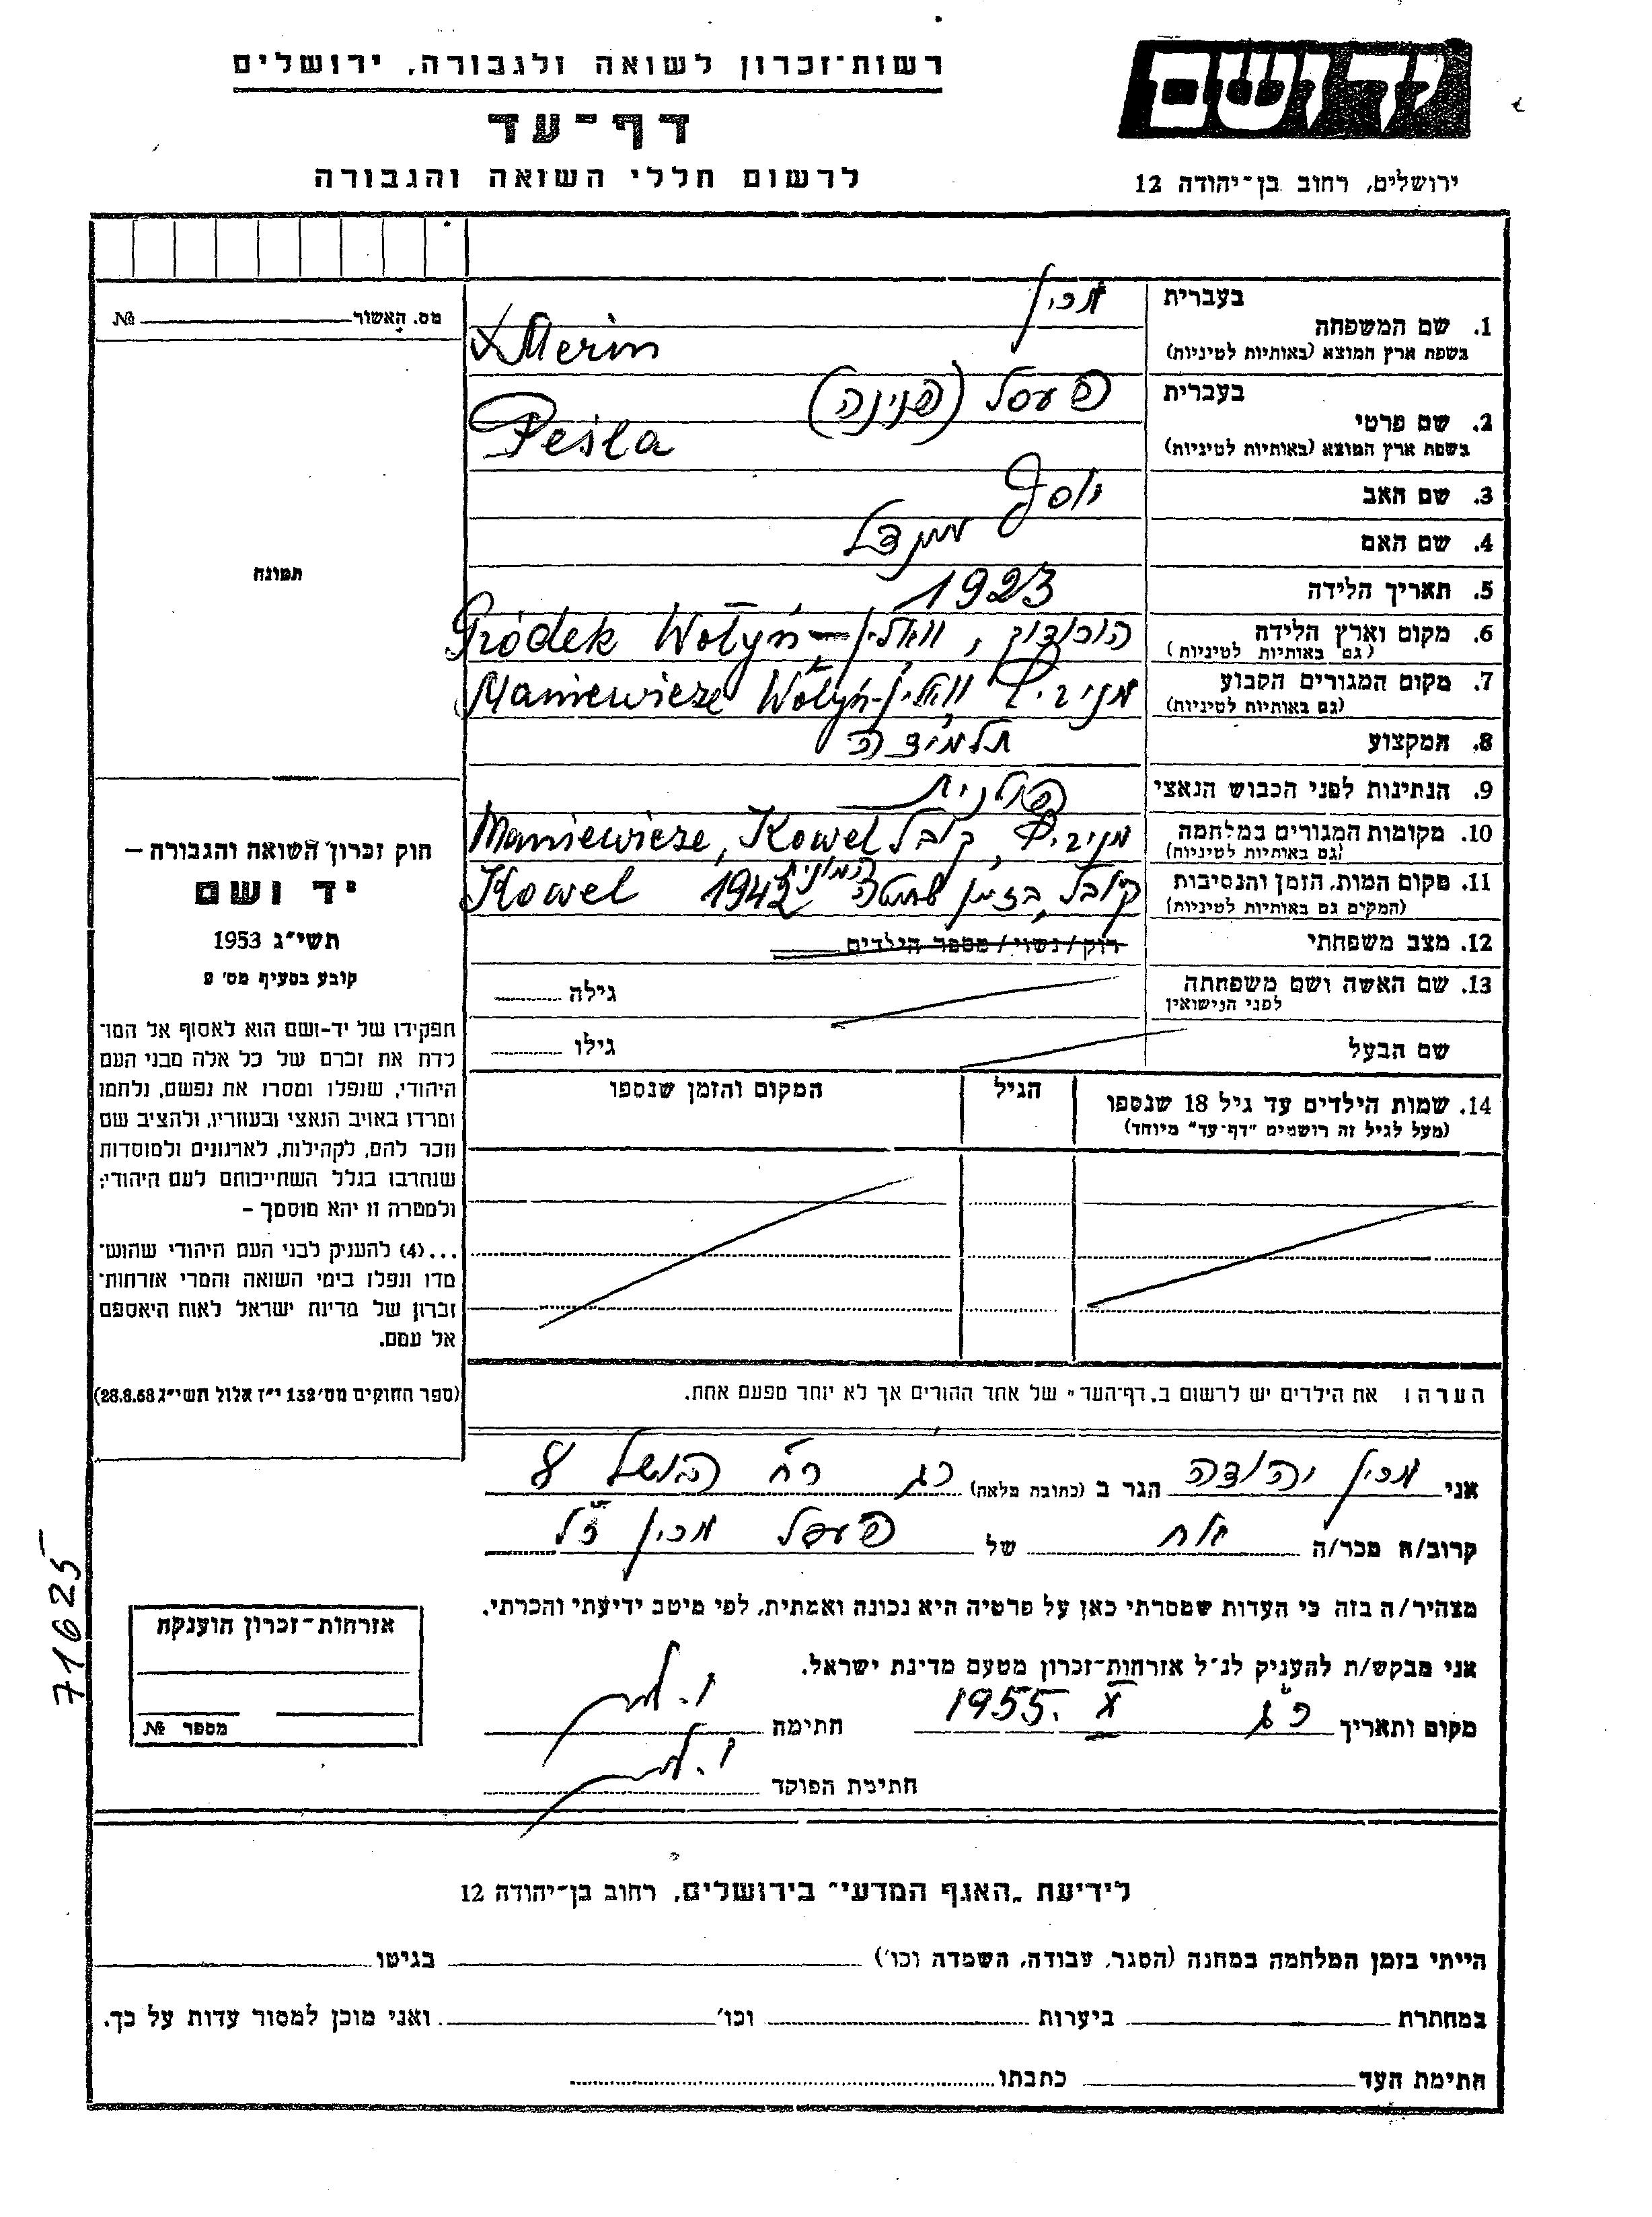 רשות־זכרון לשואה ולגבורה, ירושלים
יד ושם
דף־עד
לרשום חללי השואה והגבורה
ירושלים, רחוב בן־יהודה 12
מס. האשור № 
תמונה
חוק זכרון השואה והגבורה –
יד ושם
תשי״ג 1953
קובע בסעיף מס׳ 9
תפקידו של יד-ושם הוא לאסוף אל המו־
לדת את זכרם של כל אלה מבני העם
היהודי, שנפלו ומסרו את נפשם, נלחמו
ומרדו באויב הנאצי ובעוזריו, ולהציב שם
וזכר להם, לקהילות, לארגונים ולמוסדות
שנחרבו בגלל השתייכותם לעם היהודי;
ולמטרה זו יהא מוסמך –
...(4) להעניק לבני העם היהודי שהוש־
מדו ונפלו בימי השואה והמרי אזרחות־
זכרון של מדינת ישראל לאות היאספם
אל עמם.
(ספר החוקים מס׳ 132 י״ז אלול תשי״ג 28.8.53)
1. שם המשפחה בעברית מרין
בשפת ארץ המוצא (באותיות לטיניות) Merin
2. שם פרטי בעברית פעסל (פנינה)
בשפת ארץ המוצא (באותיות לטיניות) Pesla
3. שם האב יוסף
4. שם האם
5. תאריך הלידה 1923
6. מקום וארץ הלידה הורודוק, ווהלין – Gródek Wołyń
(גם באותיות לטיניות)
7. מקום המגורים הקבוע ווהלין – Maniewicze Wołyń
(גם באותיות לטיניות)
8. המקצוע תלמידה
9. הנתינות לפני הכבוש הנאצי פולנית
10. מקומות המגורים במלחמה קובל Maniewicze, Kowel
(גם באותיות לטיניות)
11. מקום המות, הזמן והנסיבות קובל, בזמן שחיטה המונית 1942 Kowel
(המקום גם באותיות לטיניות)
12. מצב משפחתי רוק/נשוי/מספר הילדים
13. שם האשה ושם משפחתה גילה
לפני הנישואין
שם הבעל גילו
14. שמות הילדים עד גיל 18 שנספו הגיל המקום והזמן שנספו
(מעל לגיל זה רושמים "דף־עד" מיוחד)
הערה: את הילדים יש לרשום ב„דף־העד" של אחד ההורים אך לא יותר מפעם אחת.
אני מרין יהודה הגר ב (כתובת מלאה) רג רח 8
קרוב/ה מכר/ה אח של פעסל מרין ז״ל
מצהיר/ה בזה כי העדות שמסרתי כאן על פרטיה היא נכונה ואמתית, לפי מיטב ידיעתי והכרתי.
אני מבקש/ת להעניק לנ״ל אזרחות־זכרון מטעם מדינת ישראל.
מקום ותאריך ר״ג X 1955 חתימה
חתימת הפוקד
אזרחות־זכרון הוענקה
מספר №
71625
לידיעת „האגף המדעי" בירושלים, רחוב בן־יהודה 12
הייתי בזמן המלחמה במחנה (הסגר, עבודה, השמדה וכו׳) בגיטו
במחתרת ביערות וכו׳ ואני מוכן למסור עדות על כך.
חתימת העד כתבתו